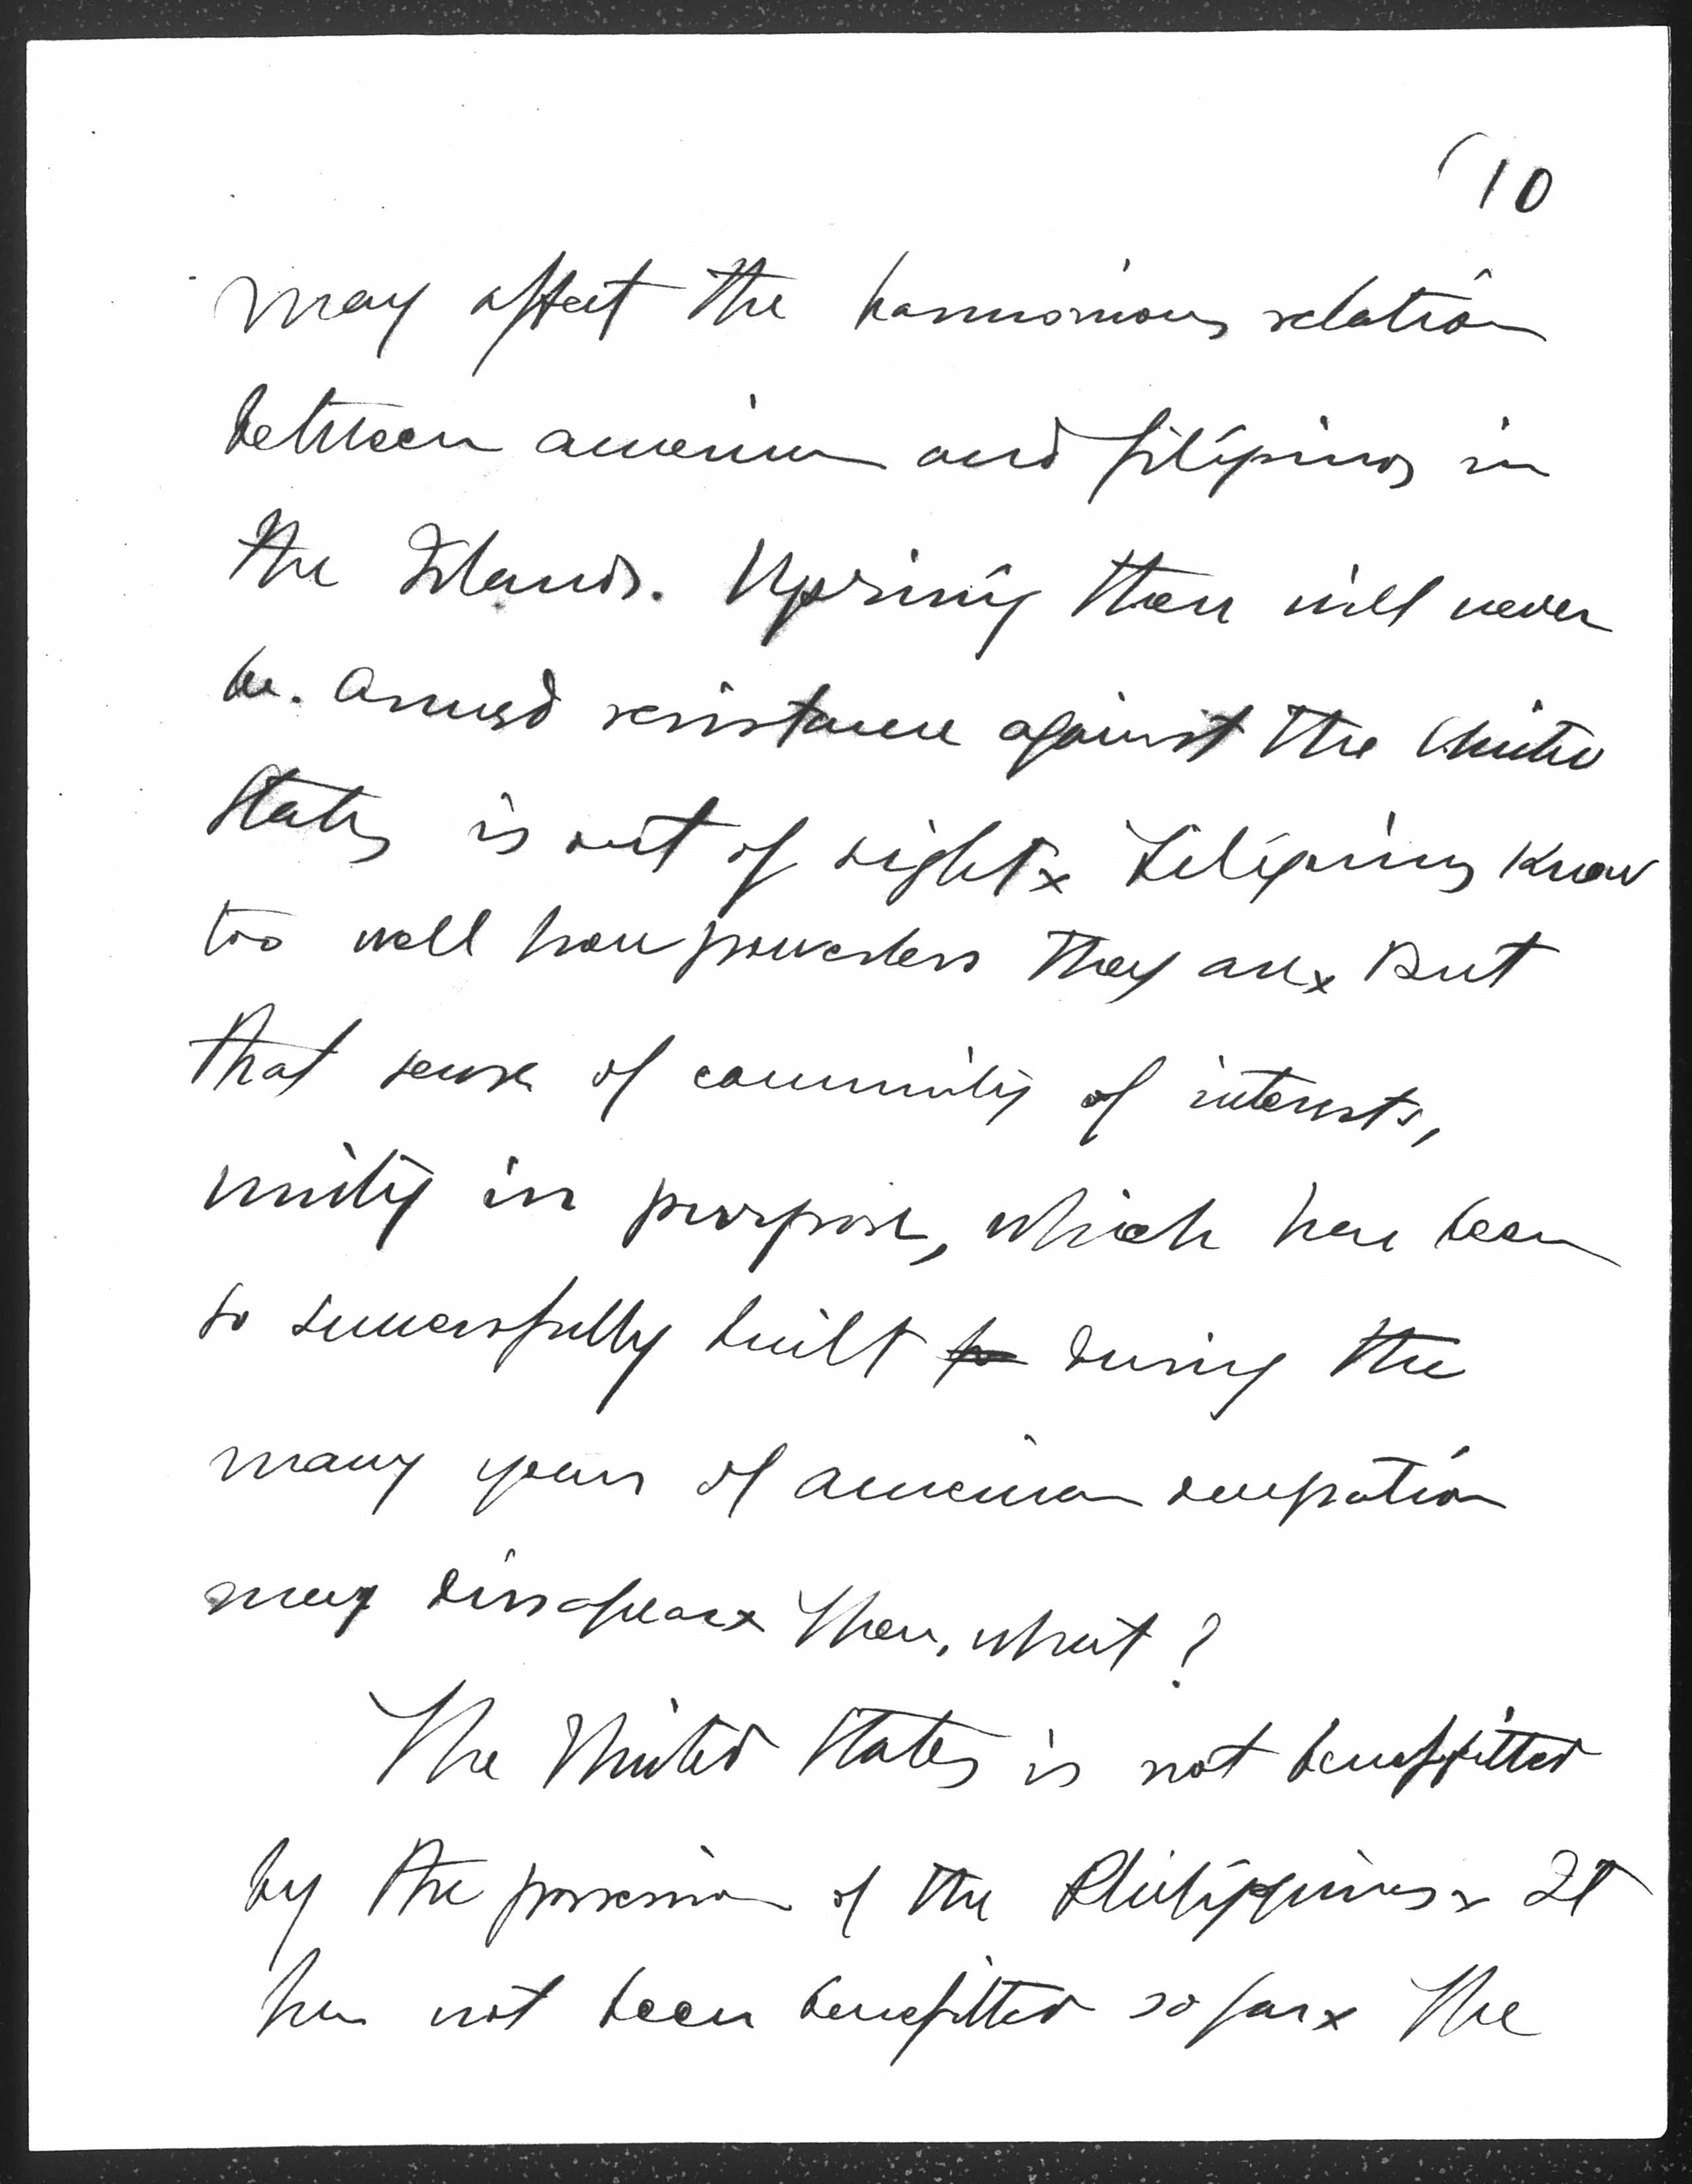 (10
may affect the harmonious relation
between american and filipinos in
the Islands. Uprising there will never
be. Armed resistance against the United
States is out of sight x Filipinos know
too well how powerless they are x But
that sense of community of interests,
unity in purpose, which have been
so successfully built during the
many years of american occupation
may dissapear x Then, what?
The United States is not beneffitted
by the possession of the Philippines x It
has not been benefitted so far x The